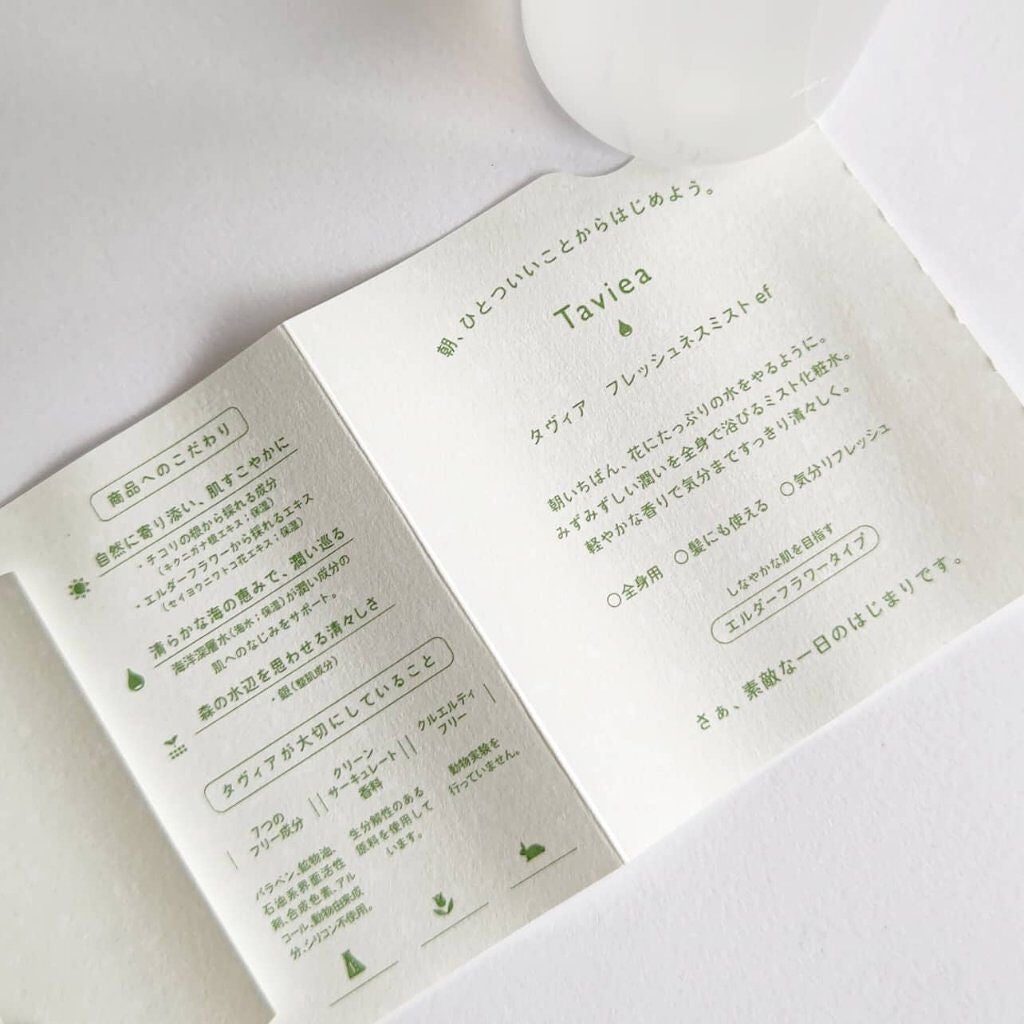 商品へのこだわり
自然に寄り添い、肌すこやかに
・チコリの根から採れる成分
(キクニガナ根エキス;保湿)
・エルダーフラワーから採れるエキス
(セイヨウニワトコ花エキス:保湿)
清らかな海の恵みで、潤い巡る
海洋深層水(海水;保湿)が潤い成分の
肌へのなじみをサポート。
森の水辺を思わせる清々しさ
・銀(整肌成分)
タヴィアが大切にしていること
7つの
フリー成分
パラベン、鉱物油、
石油系界面活性
剤、合成色素、アル
コール、動物由来成
分、シリコン不使用。
クリーン
サーキュレート
香料
生分解性のある
原料を使用して
います。
クルエルティ
フリー
動物実験を
行っていません。
朝、ひとついいことからはじめよう。
Taviea
タヴィア フレッシュネスミスト ef
朝いちばん、花にたっぷりの水をやるように。
みずみずしい潤いを全身で浴びるミスト化粧水。
軽やかな香りで気分まですっきり清々しく。
○全身用 ○髪にも使える ○気分リフレッシュ
しなやかな肌を目指す
エルダーフラワータイプ
さぁ、素敵な一日のはじまりです。